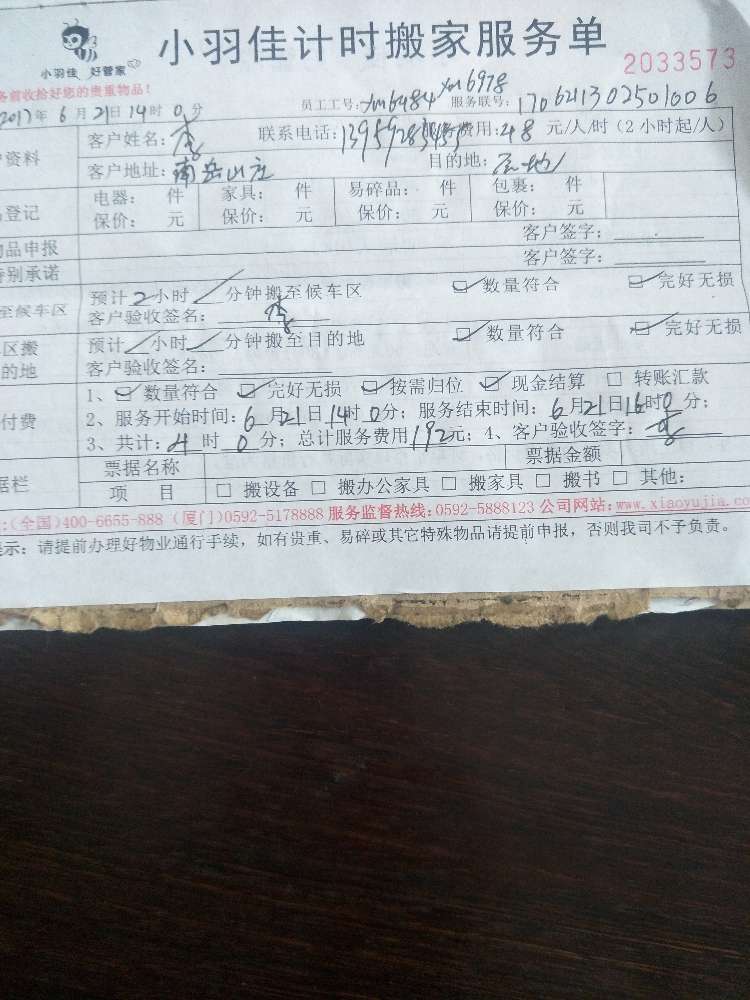 小羽佳计时搬家服务单
小羽佳 好管家
2033573
务前收拾好您的贵重物品!
员工工号: xm6484 xm6978 服务联号: 170621302501006
2017年6月21日14时0分
户资料 客户姓名: 李 联系电话: 费用: 48 元/人/时(2小时起/人)
客户地址: 南岳山庄 目的地:
登记 电器: 件 家具: 件 易碎品: 件 包裹: 件
保价: 元 保价: 元 保价: 元 保价: 元
物品申报 客户签字:
特别承诺 客户签字:
至候车区 预计2小时 分钟搬至候车区 数量符合 完好无损
客户验收签名: 李
区搬 预计 小时 分钟搬至目的地 数量符合 完好无损
的地 客户验收签名:
付费 1、数量符合 完好无损 按需归位 现金结算 转账汇款
2、服务开始时间: 6月21日14时0分; 服务结束时间: 6月21日16时0分;
3、共计: 4时0分; 总计服务费用192元; 4、客户验收签字: 李
票据名称 票据金额
据栏 项 目 搬设备 搬办公家具 搬家具 搬书 其他:
:(全国)400-6655-888 (厦门)0592-5178888 服务监督热线:0592-5888123 公司网站:www.xiaoyujia.co
示: 请提前办理好物业通行手续, 如有贵重、易碎或其它特殊物品请提前申报, 否则我司不予负责。